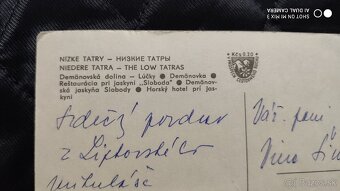 SHOT ON MI 9
AI TRIPLE CAMERA
NÍZKE TATRY — НИЗКИЕ ТАТРЫ
NIEDERE TATRA — THE LOW TATRAS
Kčs 0,30
Demänovská dolina — Lúčky ● Demänovka ●
Reštaurácia pri jaskyni „Sloboda" ● Demänov-
ská jaskyňa Slobody ● Horský hotel pri jas-
kyni
Srdečný pozdrav
z Liptovského
Mikuláša
Váž. pani
bazos.sk